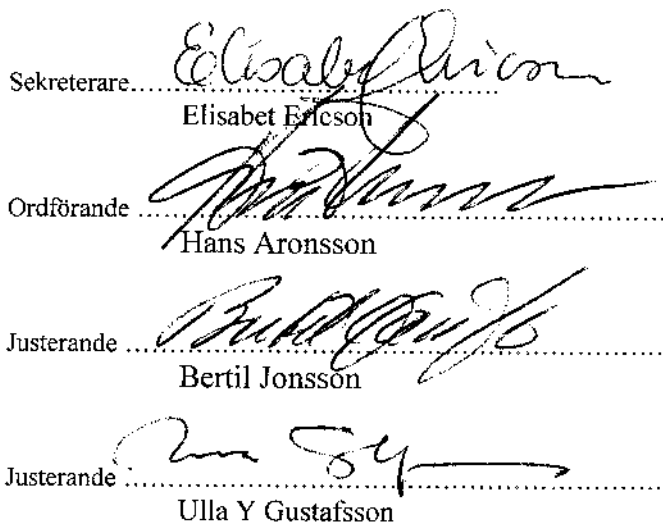 Sekreterare.... Elisabet Ericson
Elisabet Ericson
Ordförande ....
Hans Aronsson
Justerande ....
Bertil Jonsson
Justerande ....
Ulla Y Gustafsson